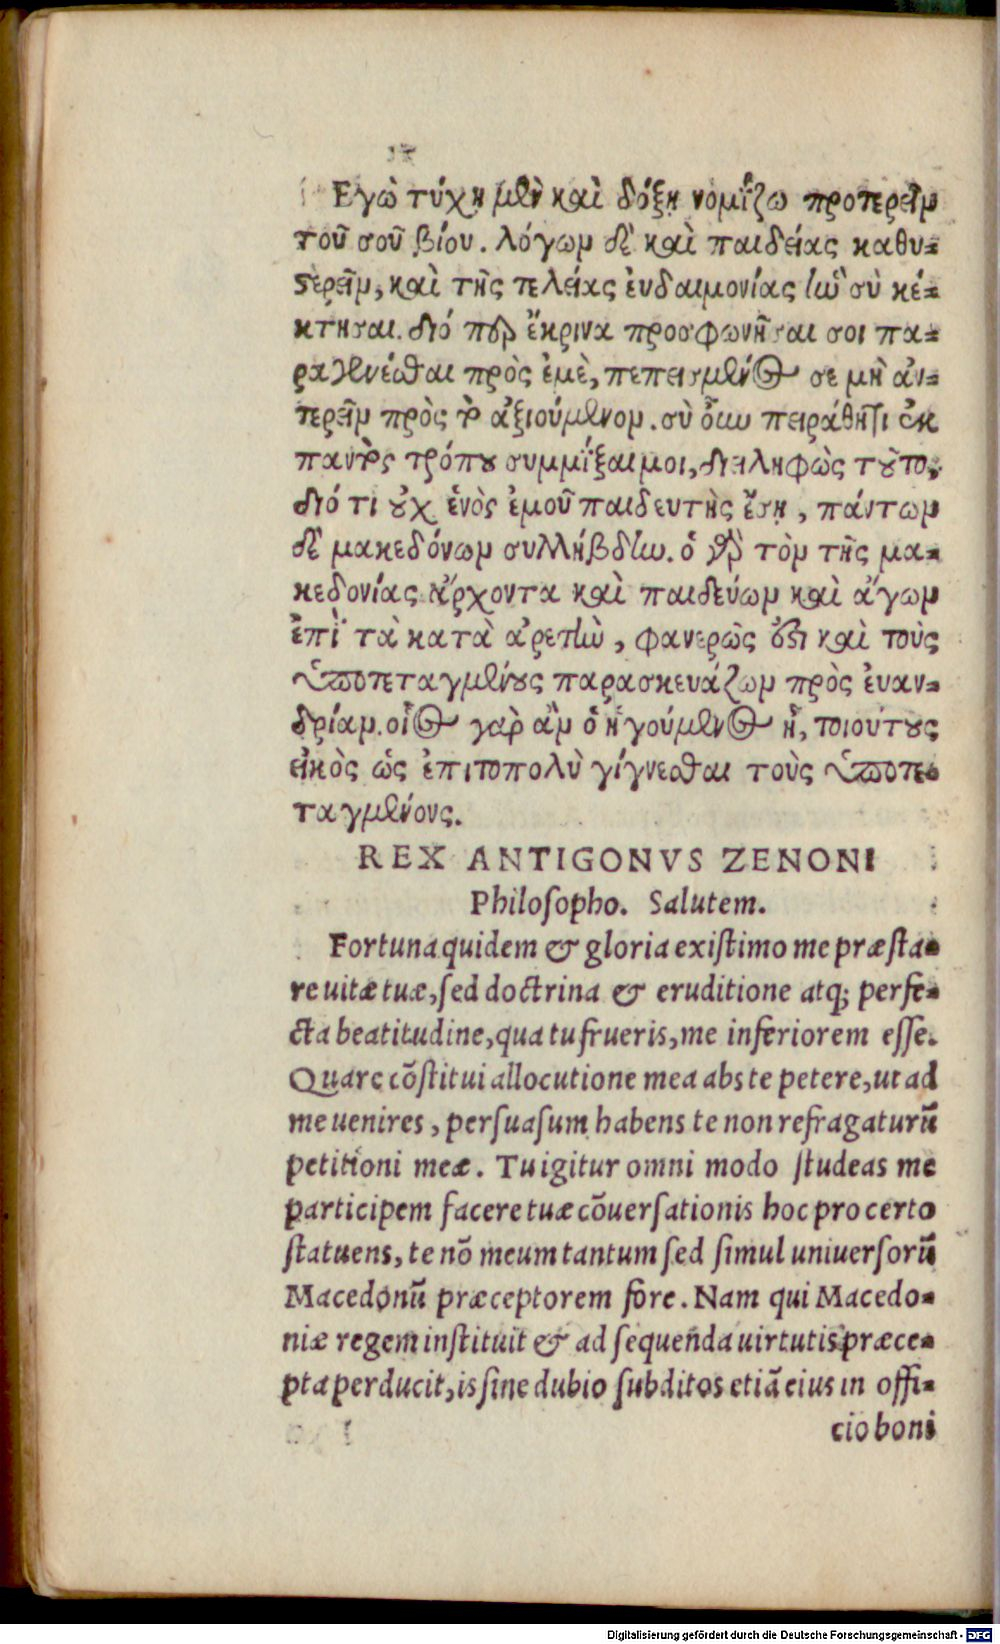 Εγὼ τύχῃ μὲν καὶ δόξῃ νομΐζω προτερεῖν
τοῦ σοῦ βίου. λόγων δὲ καὶ παιδείας καθυ-
ςερεῖν, καὶ τῆς τελείας ἐυδαιμονίας ἣν σὺ κέ-
κτησαι. διό περ ἔκρινα προσφωνῆσαι σοι πα-
ραγενέσθαι πρὸς ἐμὲ, πεπεισμένος σε μὴ ἀν-
τερεῖν πρὸς τὸ ἀξιούμενον. σὺ οὖν πειράθητι ἐκ
παντὸς τρόπου συμμΐξαι μοι, διειληφὼς τοῦτο,
διό τι οὐχ ἑνὸς ἐμοῦ παιδευτὴς ἔσῃ, πάντων
δὲ μακεδόνων συλλήβδην. ὁ γὰρ τὸν τῆς μα-
κεδονίας ἄρχοντα καὶ παιδεύων καὶ ἄγων
ἐπῒ τὰ κατὰ ἀρετὴν, φανερῶς ἐστι καὶ τοὺς
ὑποτεταγμένους παρασκευάζων πρὸς ἐυαν-
δρίαν. οἷος γαρ ἂν ὁ ἡγούμενος ᾖ, τοιούτους
εἰκὸς ὡς ἐπιτοπολὺ γίγνεσθαι τοὺς ὑποτε-
ταγμένους.
REX ANTIGONVS ZENONI
Philosopho. Salutem.
Fortuna quidem & gloria existimo me præsta-
re uitæ tuæ, sed doctrina & eruditione atq; perfe-
cta beatitudine, qua tu frueris, me inferiorem esse.
Quare cõstitui allocutione mea abs te petere, ut ad
me uenires, persuasum habens te non refragaturũ
petitioni meæ. Tu igitur omni modo studeas me
participem facere tuæ cõuersationis hoc pro certo
statuens, te nõ meum tantum sed simul uniuersorũ
Macedonũ præceptorem fore. Nam qui Macedo-
niæ regem instituit & ad sequenda uirtutis præce-
pta perducit, is sine dubio subditos etiã eius in offi-
cio boni
Digitalisierung gefördert durch die Deutsche Forschungsgemeinschaft - DFG